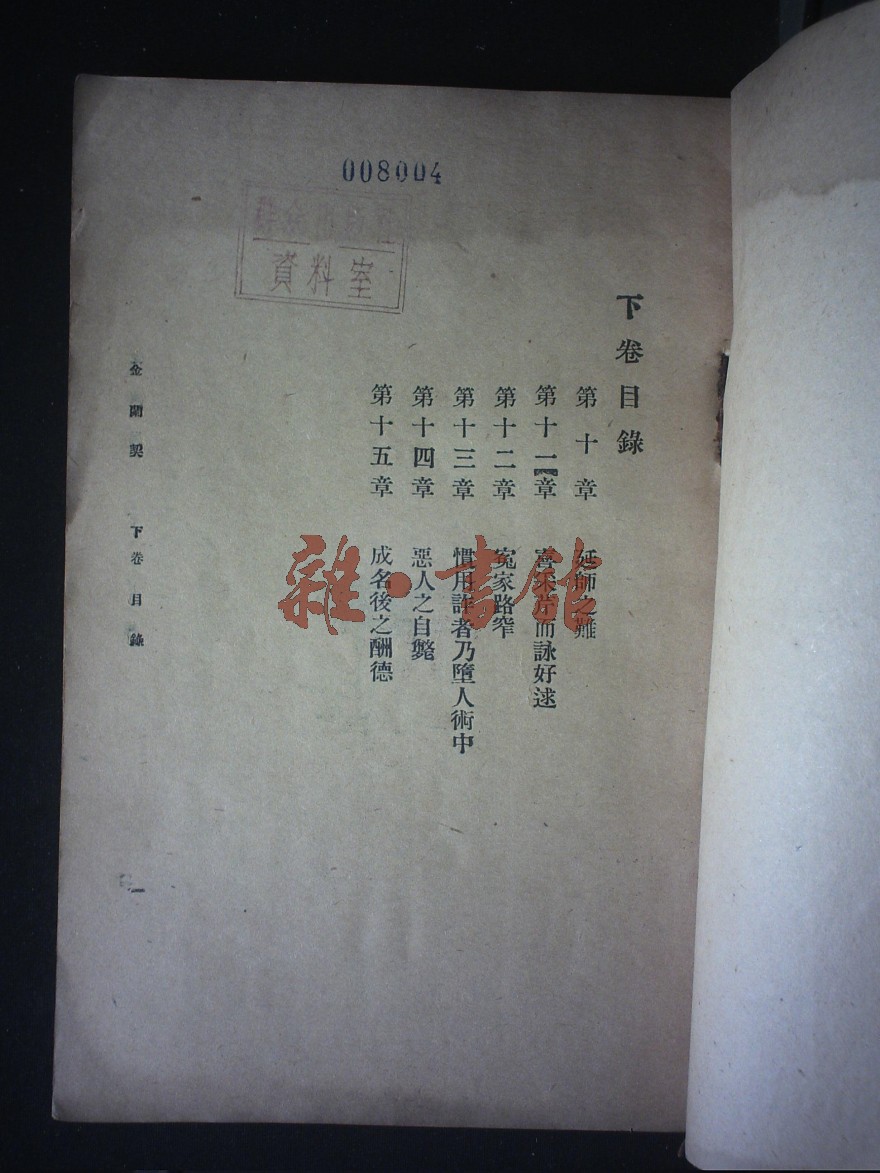 008004
資料室
下卷目錄
第十章 延師之難
第十一章 喜采芹而詠好逑
第十二章 冤家路窄
第十三章 慣用詐者乃墮人術中
第十四章 惡人之自斃
第十五章 成名後之酬德
金蘭契 下卷目錄 一
雜·書館